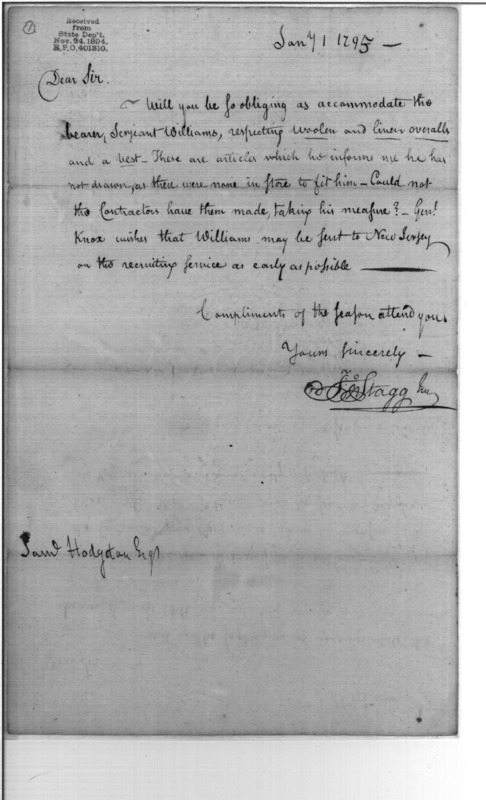 1
Received
from
State Dep't.
Nov. 24. 1894.
R.P.O, 401310.
Jany 1 1795 —
Dear Sir.
~ Will you be so obliging as accommodate the
bearer, Serjeant Williams, respecting woolen and linen overalls
and a vest — These are articles which he informs me he has
not drawn, as there were none in store to fit him — Could not
the Contractors have them made, taking his measure? — Genl
Knox wishes that Williams may be sent to New Jersey
on the recruiting service as early as possible —
Compliments of the season attend you.
Yours sincerely —
Jno Stagg Jun
Saml Hodgdon Esqr